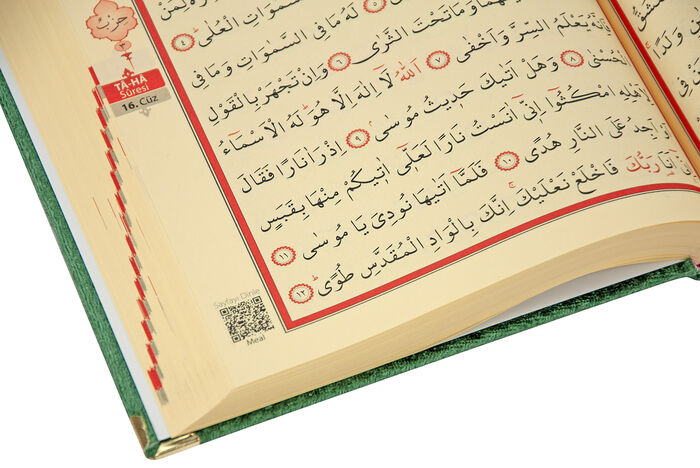 حزب
٣
TÂ-HÂ
Sûresi
16. Cüz
الْعُلٰىۜ ٤
٥ لَهُ مَا فِي السَّمٰوَاتِ وَمَا فِي
بَيْنَهُمَا وَمَا تَحْتَ الثَّرٰى ٦ وَاِنْ تَجْهَرْ بِالْقَوْلِ
فَاِنَّهُ يَعْلَمُ السِّرَّ وَاَخْفٰى ٧ اَللّٰهُ لَٓا اِلٰهَ اِلَّا هُوَۜ لَهُ الْاَسْمَٓاءُ
الْحُسْنٰى ٨ وَهَلْ اَتٰيكَ حَدِيثُ مُوسٰىۢ ٩ اِذْ رَاٰ نَارًا فَقَالَ
لِاَهْلِهِ امْكُثُٓوا اِنِّٓي اٰنَسْتُ نَارًا لَعَلِّٓي اٰتِيكُمْ مِنْهَا بِقَبَسٍ
اَوْ اَجِدُ عَلَى النَّارِ هُدًى ١٠ فَلَمَّٓا اَتٰيهَا نُودِيَ يَا مُوسٰىۜ ١١
اِنِّٓي اَنَا۬ رَبُّكَ فَاخْلَعْ نَعْلَيْكَۚ اِنَّكَ بِالْوَادِ الْمُقَدَّسِ طُوًىۜ ١٢
Sayfayı Dinle
Meal